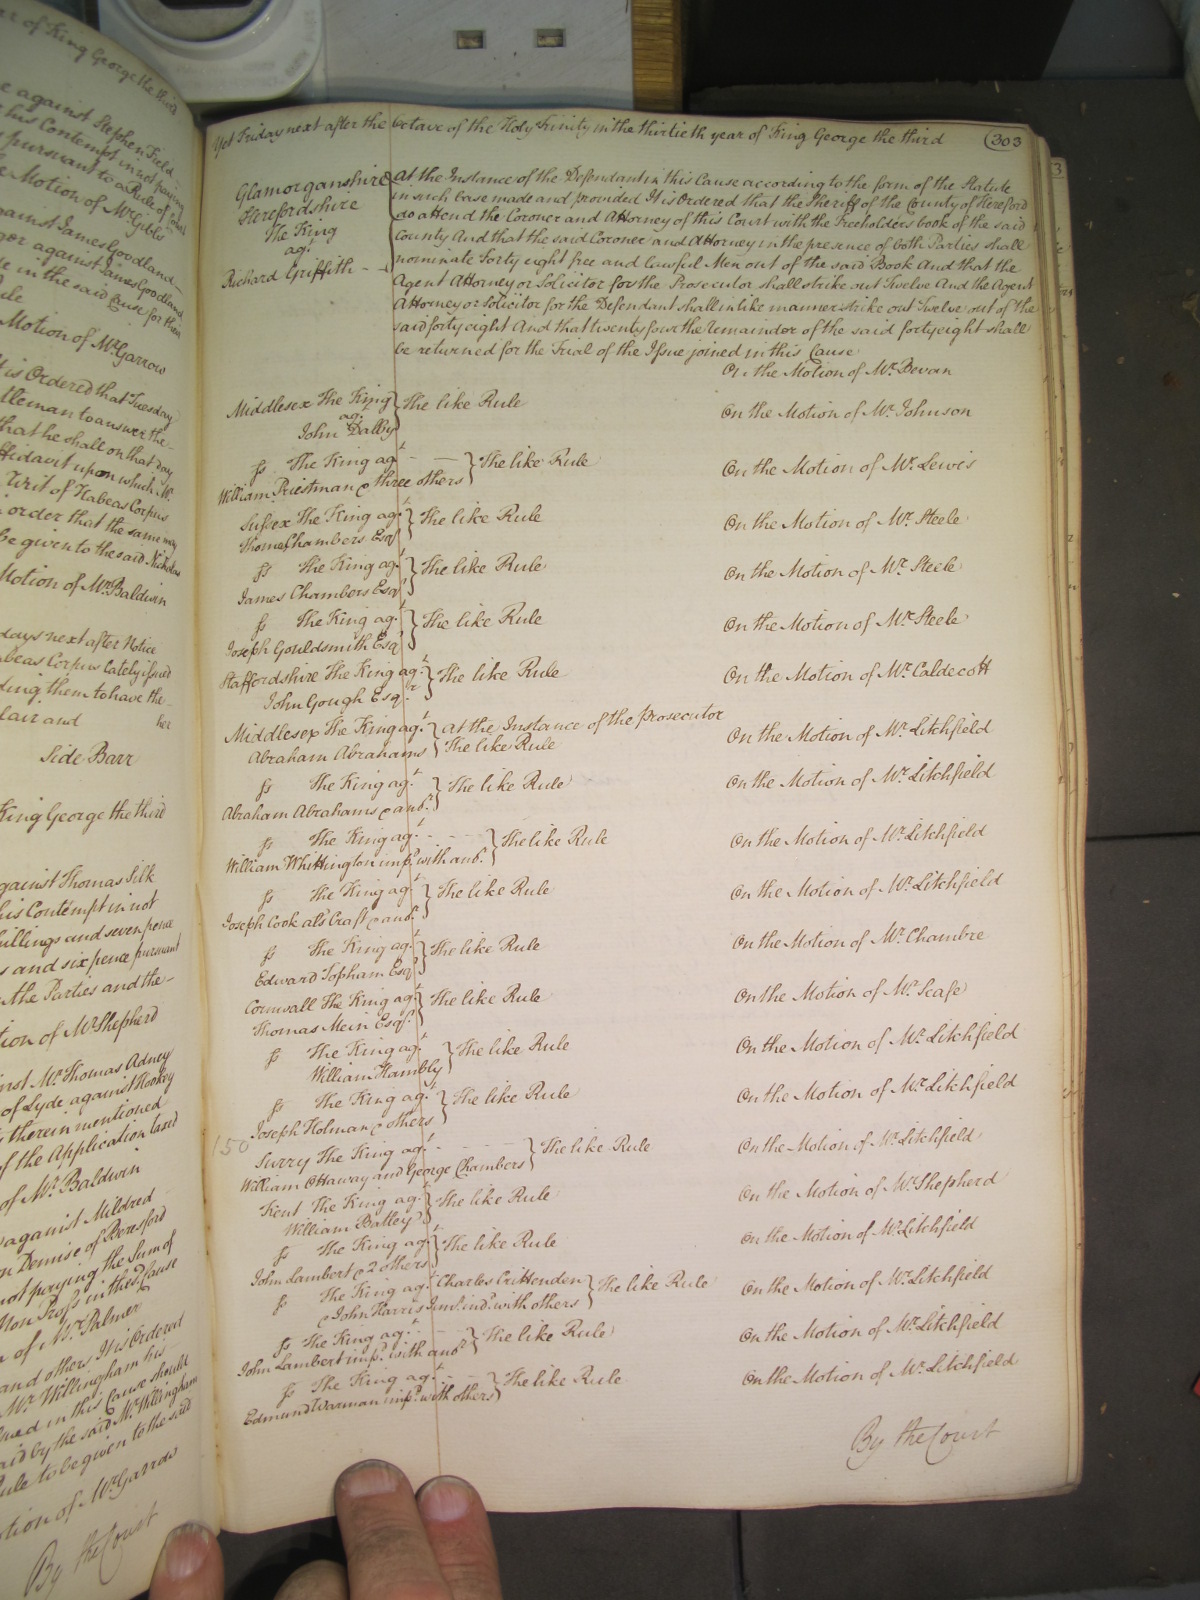 ar of King George the third
e against Stephen Field
his Contempt in not paying
pursuant to a Rule of Court
e Motion of Mr. Gibbs
gainst James Goodland
ger against James Goodland
e in the said Cause for them
Rule
Motion of Mr. Garrow
t is Ordered that Tuesday
tleman to answer the
that he shall on that day
ffidavit upon which Mr.
Writ of Habeas Corpus
order that the same may
be given to the said Nicholas
Motion of Mr. Baldwin
days next after Notice
beas Corpus lately issued
ding them to have the
lair and her
Side Barr
King George the third
gainst Thomas Silk
his Contempt in not
hillings and seven pence
s and six pence pursuant
the Parties and the
tion of Mr. Shepherd
inst Mr. Thomas Adney
of Lyde against Hookey
s therein mentioned
f the Application taxed
of Mr. Baldwin
against Mildred
on Demise of Beresford
not paying the Sum of
Non Pros in the sd. Cause
n of Mr. Palmer
and others It is Ordered
Mr. Willingham his
sued in this Cause should
aid by the said Mr. Willingham
ule to be given to the said
otion of Mr. Garrow
By the Court
Yet Friday next after the Octave of the Holy Trinity in the thirtieth year of King George the third 303
Glamorganshire At the Instance of the Defendant in this Cause according to the form of the Statute
Herefordshire in such Case made and provided It is Ordered that the Sheriff of the County of Hereford
The King do attend the Coroner and Attorney of this Court with the Freeholders book of the said
agt. County And that the said Coroner and Attorney in the presence of both Parties shall
Richard Griffith nominate Forty eight free and lawful Men out of the said Book And that the
Agent Attorney or Solicitor for the Prosecutor shall strike out Twelve And the Agent
Attorney or Solicitor for the Defendant shall in like manner strike out Twelve out of the
said forty eight And that twenty four the remainder of the said forty eight shall
be returned for the Trial of the Issue joined in this Cause
On the Motion of Mr. Bevan
Middlesex The King The like Rule On the Motion of Mr. Johnson
agt.
John Dalby
ss The King agt. The like Rule On the Motion of Mr. Lewis
William Priestman & three others
Sussex The King agt. The like Rule On the Motion of Mr. Steele
Thomas Chambers Esqr.
ss The King agt. The like Rule On the Motion of Mr. Steele
James Chambers Esqr.
ss The King agt. The like Rule On the Motion of Mr. Steele
Joseph Gouldsmith Esqr.
Staffordshire The King agt. The like Rule On the Motion of Mr. Caldecott
John Gough Esqr.
Middlesex The King agt. At the Instance of the Prosecutor On the Motion of Mr. Litchfield
Abraham Abrahams The like Rule
ss The King agt. The like Rule On the Motion of Mr. Litchfield
Abraham Abrahams & anor.
ss The King agt. The like Rule On the Motion of Mr. Litchfield
William Whittington impd. with anor.
ss The King agt. The like Rule On the Motion of Mr. Litchfield
Joseph Cook als Craft & anor.
ss The King agt. The like Rule On the Motion of Mr. Chambre
Edward Topham Esqr.
Cornwall The King agt. The like Rule On the Motion of Mr. Scafe
Thomas Mein Esqr.
ss The King agt. The like Rule On the Motion of Mr. Litchfield
William Hambly
ss The King agt. The like Rule On the Motion of Mr. Litchfield
Joseph Holman & others
150
Surry The King agt. The like Rule On the Motion of Mr. Litchfield
William Ottaway and George Chambers
Kent The King agt. The like Rule On the Motion of Mr. Shepherd
William Batley
ss The King agt. The like Rule On the Motion of Mr. Litchfield
John Lambert & 2 others
ss The King agt. Charles Crittenden The like Rule On the Motion of Mr. Litchfield
& John Harris Junr. ind. with others
ss The King agt. The like Rule On the Motion of Mr. Litchfield
John Lambert impd. with anor.
ss The King agt. The like Rule On the Motion of Mr. Litchfield
Edmund Warman impd. with others
By the Court